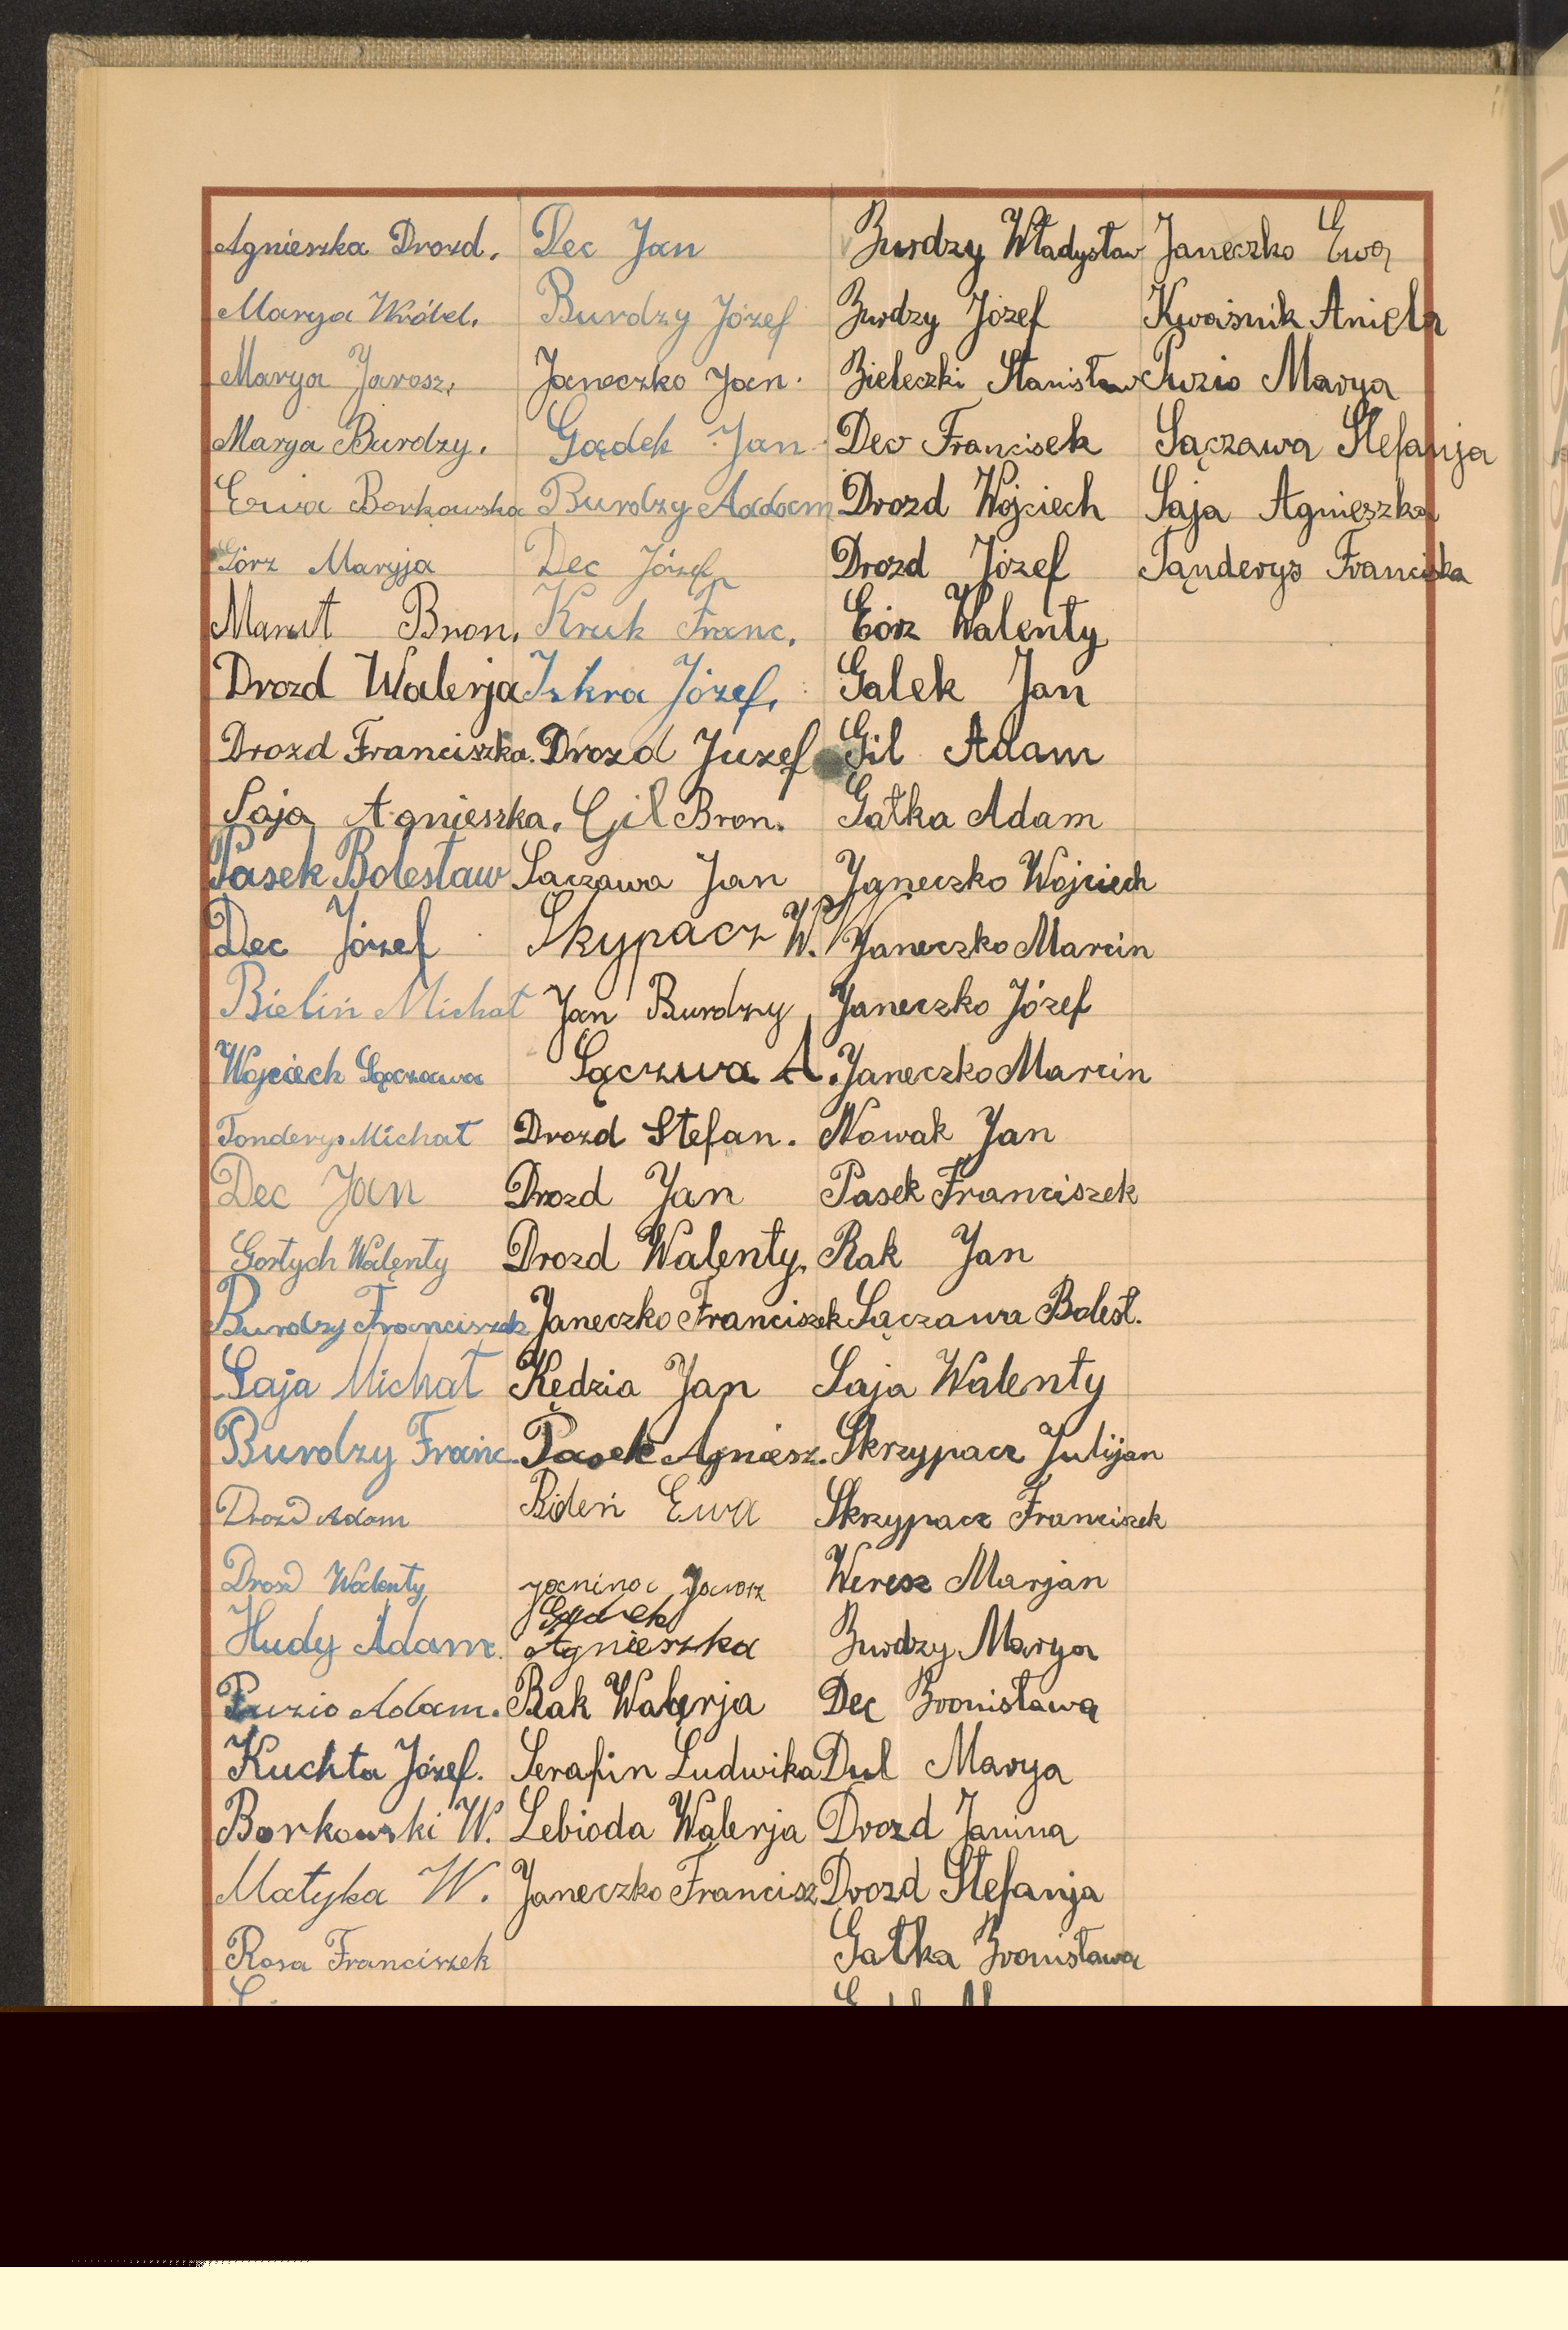 Agnieszka Drozd. Dec Jan Burdzy Władysław Janeczko Ewa
Marya Wróbel. Burdzy Józef Burdzy Józef Kwaśnik Aniela
Marya Jarosz. Janeczko Jan. Bieleczki Stanisław Puzio Marya
Marya Burdzy. Gądek Jan Dec Francisek Sączawa Stefanja
Ewa Borkowska Burdzy Aadam Drozd Wojciech Saja Agnieszka
Górz Maryja Dec Józef Drozd Józef Tanderys Franciska
Marut Bron. Kruk Franc. Górz Walenty
Drozd Walerja Iskra Józef. Galek Jan
Drozd Franciszka. Drozd Juzef Gil Adam
Saja Agnieszka. Gil Bron. Gałka Adam
Pasek Bolesław Sączawa Jan Janeczko Wojciech
Dec Józef Skypacz W. Janeczko Marcin
Bieliń Michał Jan Burdzy Janeczko Józef
Wojciech Sączawa Sączwa A. Janeczko Marcin
Tonderys Michał Drozd Stefan. Nowak Jan
Dec Jan Drozd Jan Pasek Franciszek
Gortych Walenty Drozd Walenty. Rak Jan
Burdzy Franciszek Janeczko Franciszek Sączawa Bolesł.
Saja Michał Kędzia Jan Saja Walenty
Burdzy Franc. Pasek Agniesz. Skrzypacz Julijan
Drozd Adam Bideń Ewa Skrzypacz Franciszek
Drozd Walenty Janina Jarosz Weresz Marjan
Gądek
Hudy Adam. Agnieszka Burdzy Marya
Puzio Adam. Rak Walerja Dec Bronisława
Kuchta Józef. Serafin Ludwika Dul Marya
Borkowski W. Lebioda Walerja Drozd Janina
Matyka W. Janeczko Francisz Drozd Stefanja
Rosa Franciszek Gałka Bronisława